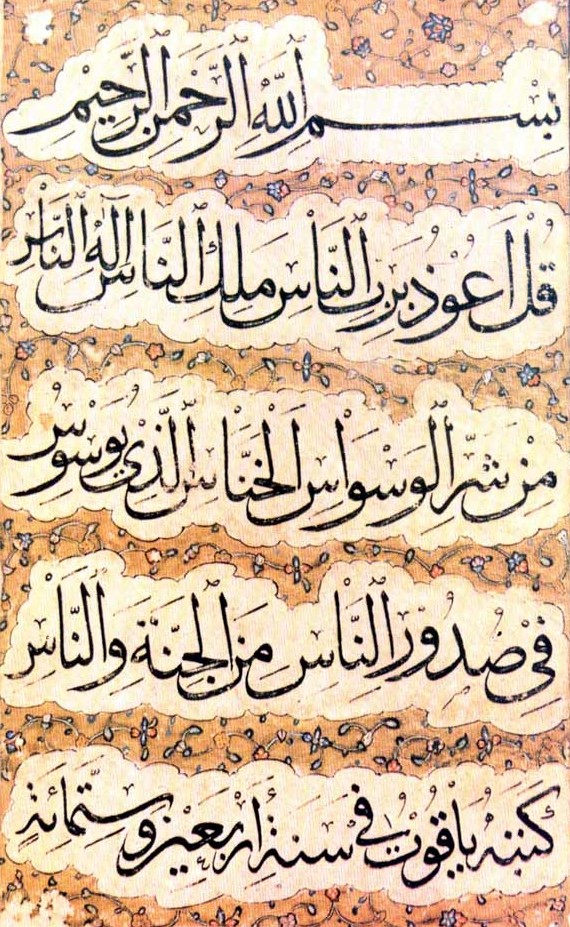 بِسْمِ اللَّهِ الرَّحْمٰنِ الرَّحِيْمِ
قُلْ اَعُوْذُ بِرَبِّ النَّاسِ مَلِكِ النَّاسِ اِلٰهِ النَّاسِ
مِنْ شَرِّ الْوَسْوَاسِ الْخَنَّاسِ الَّذِيْ يُوَسْوِسُ
فِيْ صُدُوْرِ النَّاسِ مِنَ الْجِنَّةِ وَالنَّاسِ
كَتَبَهُ يَاقُوْت فِي سَنَةِ أَرْبَعِيْنَ وَسِتَّمِائَةٍ